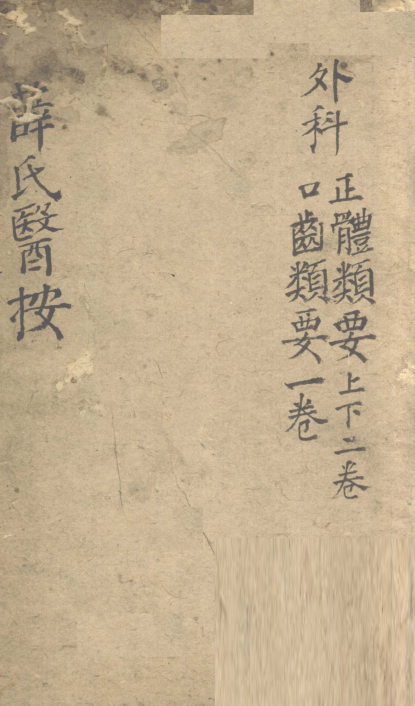 外科
正體類要上下二卷
口齒類要一卷
薛氏醫按